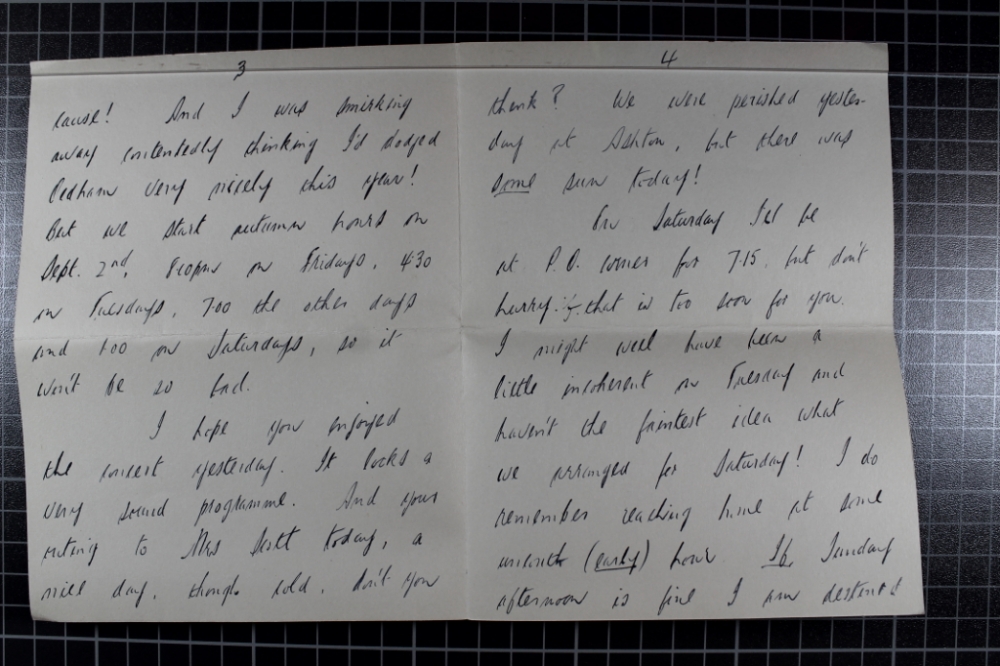 3
cause! And I was smirking
away contentedly thinking I'd dodged
Pedham very nicely this year!
But we start autumn hours on
Sept. 2nd, 8.0pm on Fridays, 4.30
on Tuesdays, 7.00 the other days
and 1.00 on Saturdays, so it
won't be so bad.
I hope you enjoyed
the concert yesterday. It looks a
very sound programme. And your
outing to Mrs Scott today, a
nice day, though cold, don't you
4
think? We were perished yester-
day at Ashton, but there was
some sun today!
On Saturday I'll be
at P.O. corner for 7.15, but don't
hurry if that is too soon for you.
I might well have been a
little incoherent on Tuesday and
haven't the faintest idea what
we arranged for Saturday! I do
remember reaching home at some
uncouth (early) hour. If Sunday
afternoon is fine I am destined